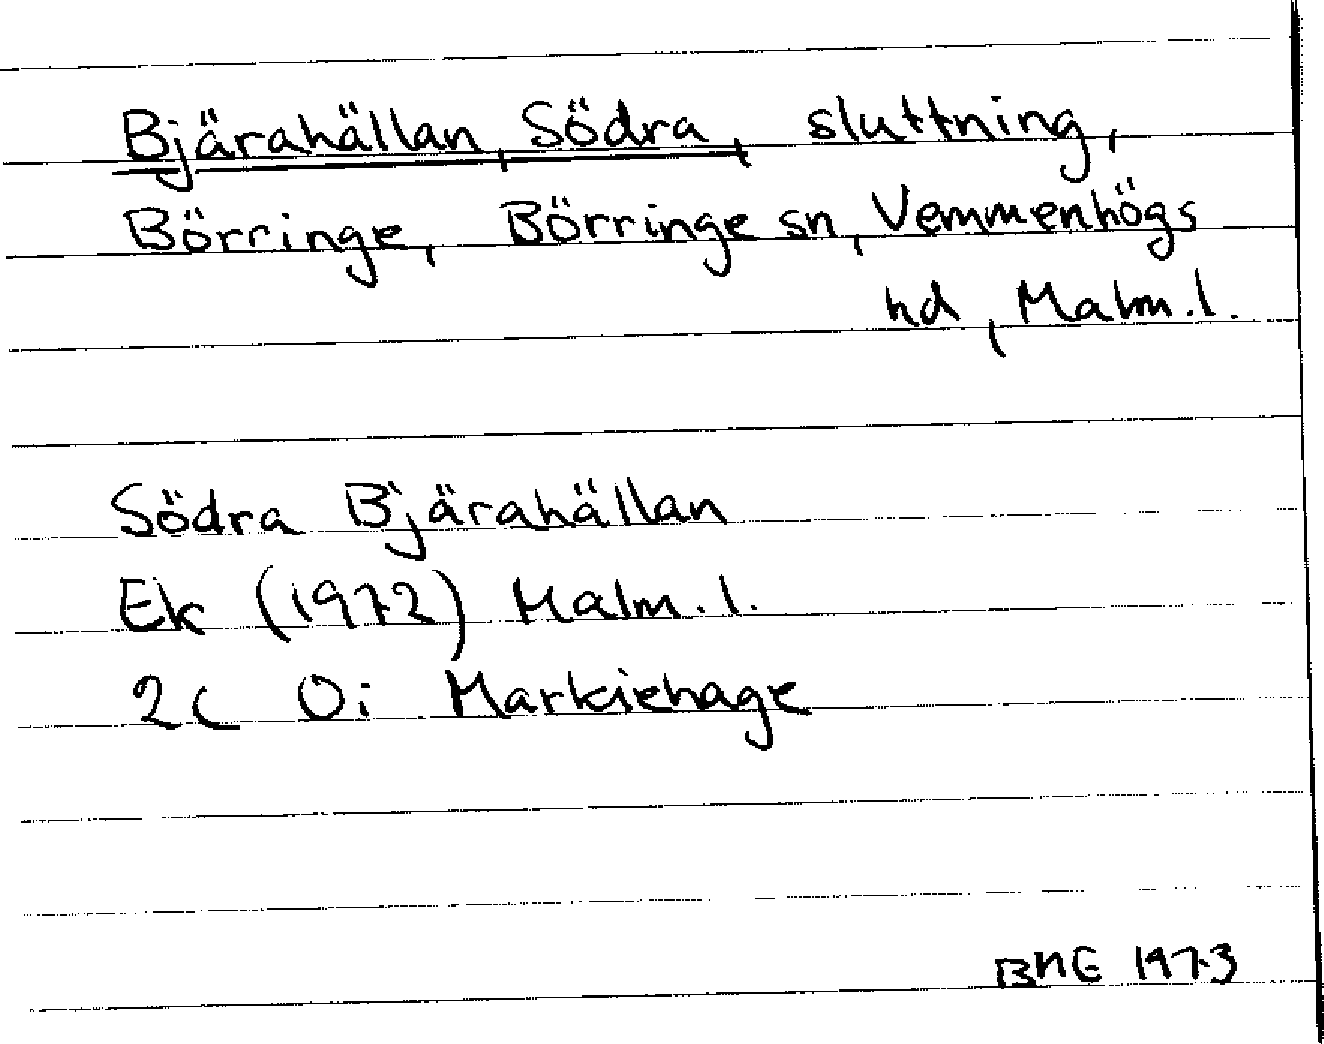 Bjärahällan, Södra, sluttning,
Börringe, Börringe sn, Vemmenhögs
hd, Malm.l.
Södra Bjärahällan
Ek (1972) Malm.l.
2C Oi Markiehage
BHE 1973